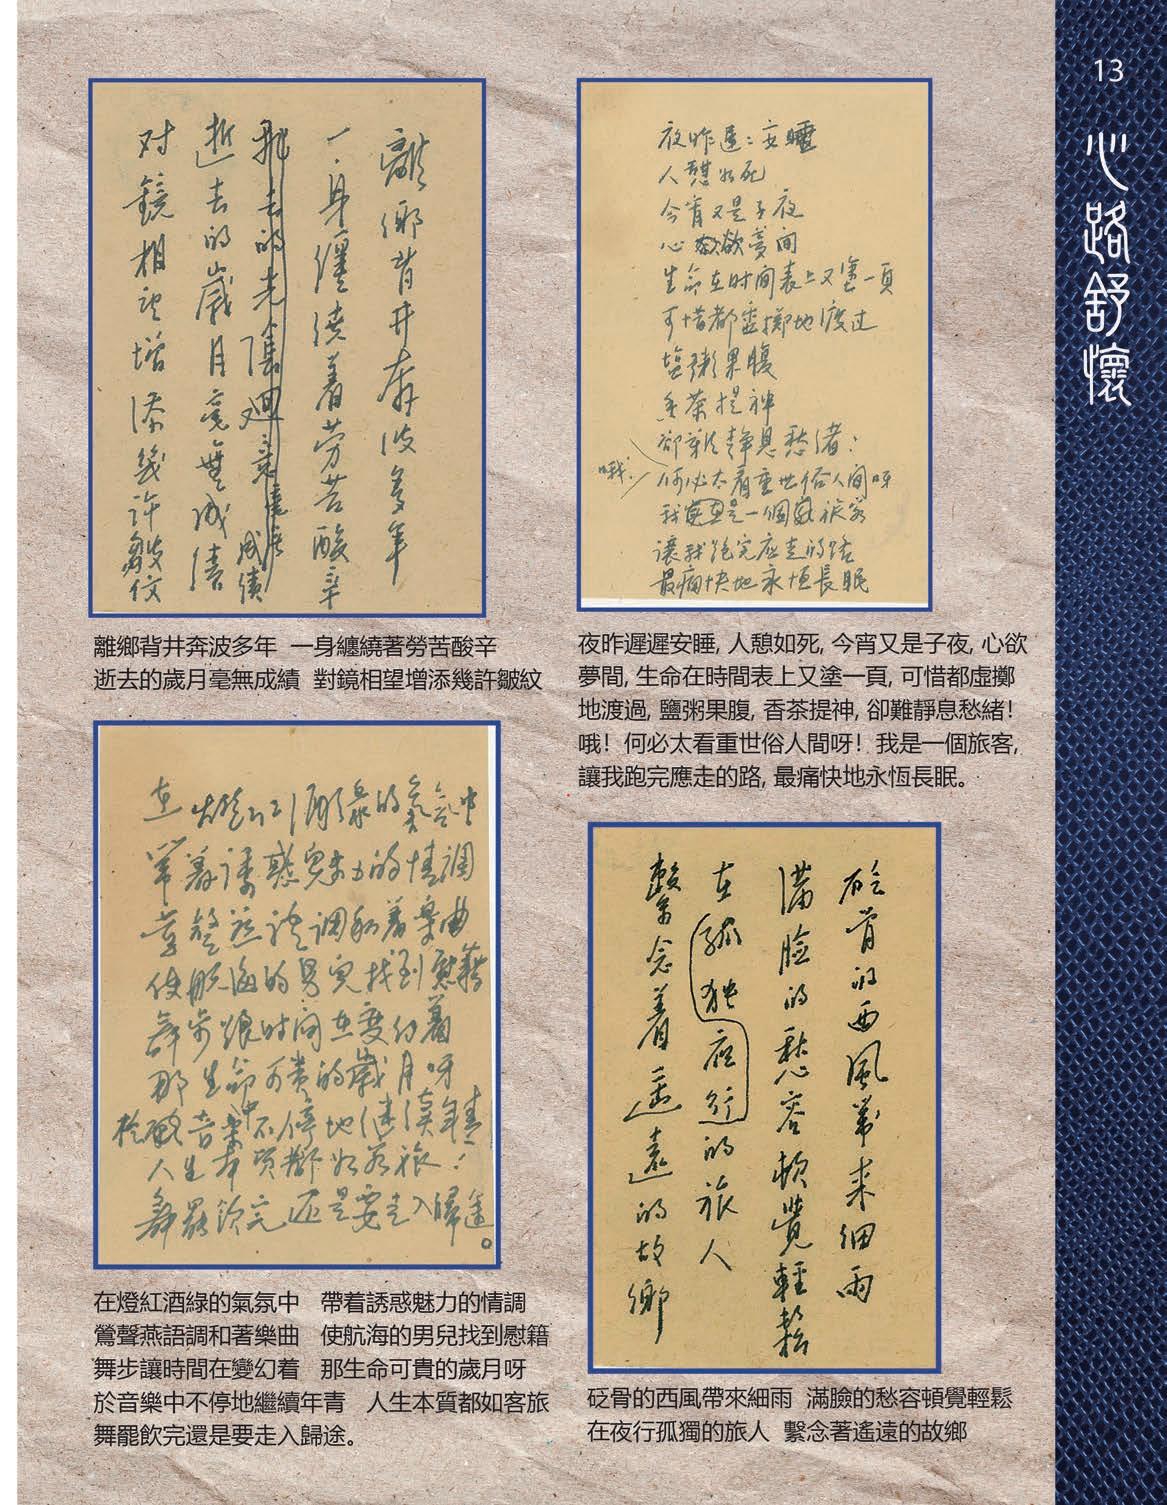 13
心路舒懷
離鄉背井奔波多年
一身纏繞着勞苦酸辛
逝去的歲月毫無成績
对鏡相望增添幾許皺紋
離鄉背井奔波多年 一身纏繞著勞苦酸辛
逝去的歲月毫無成績 對鏡相望增添幾許皺紋
夜昨遲:安睡
人憩如死
今宵又是子夜
心欲夢间
生命在时间表上又塗一頁
可惜都虛擲地渡过
塩粥果腹
香茶提神
卻難静息愁緒!
哦!何必太看重世俗人间呀
我是一個旅客
讓我跑完应走的路
最痛快地永恒長眠
夜昨遲遲安睡, 人憩如死, 今宵又是子夜, 心欲
夢間, 生命在時間表上又塗一頁, 可惜都虛擲
地渡過, 鹽粥果腹, 香茶提神, 卻難靜息愁緒!
哦! 何必太看重世俗人間呀! 我是一個旅客,
讓我跑完應走的路, 最痛快地永恆長眠。
在燈红酒綠的氣氛中
帶着诱惑魅力的情調
鶯聲燕語调和着樂曲
使航海的男兒找到慰藉
舞步讓时间在变幻着
那生命可贵的歲月呀
於音樂中不停地继续年青
人生本质都如客旅!
舞罷飲完还是要走入歸途。
在燈紅酒綠的氣氛中 帶着誘惑魅力的情調
鶯聲燕語調和著樂曲 使航海的男兒找到慰籍
舞步讓時間在變幻着 那生命可貴的歲月呀
於音樂中不停地繼續年青 人生本質都如客旅
舞罷飲完還是要走入歸途。
砭骨的西風帶来细雨
满臉的愁容頓覺輕鬆
在孤独夜行的旅人
繫念着遥遠的故鄉
砭骨的西風帶來細雨 滿臉的愁容頓覺輕鬆
在夜行孤獨的旅人 繫念著遙遠的故鄉